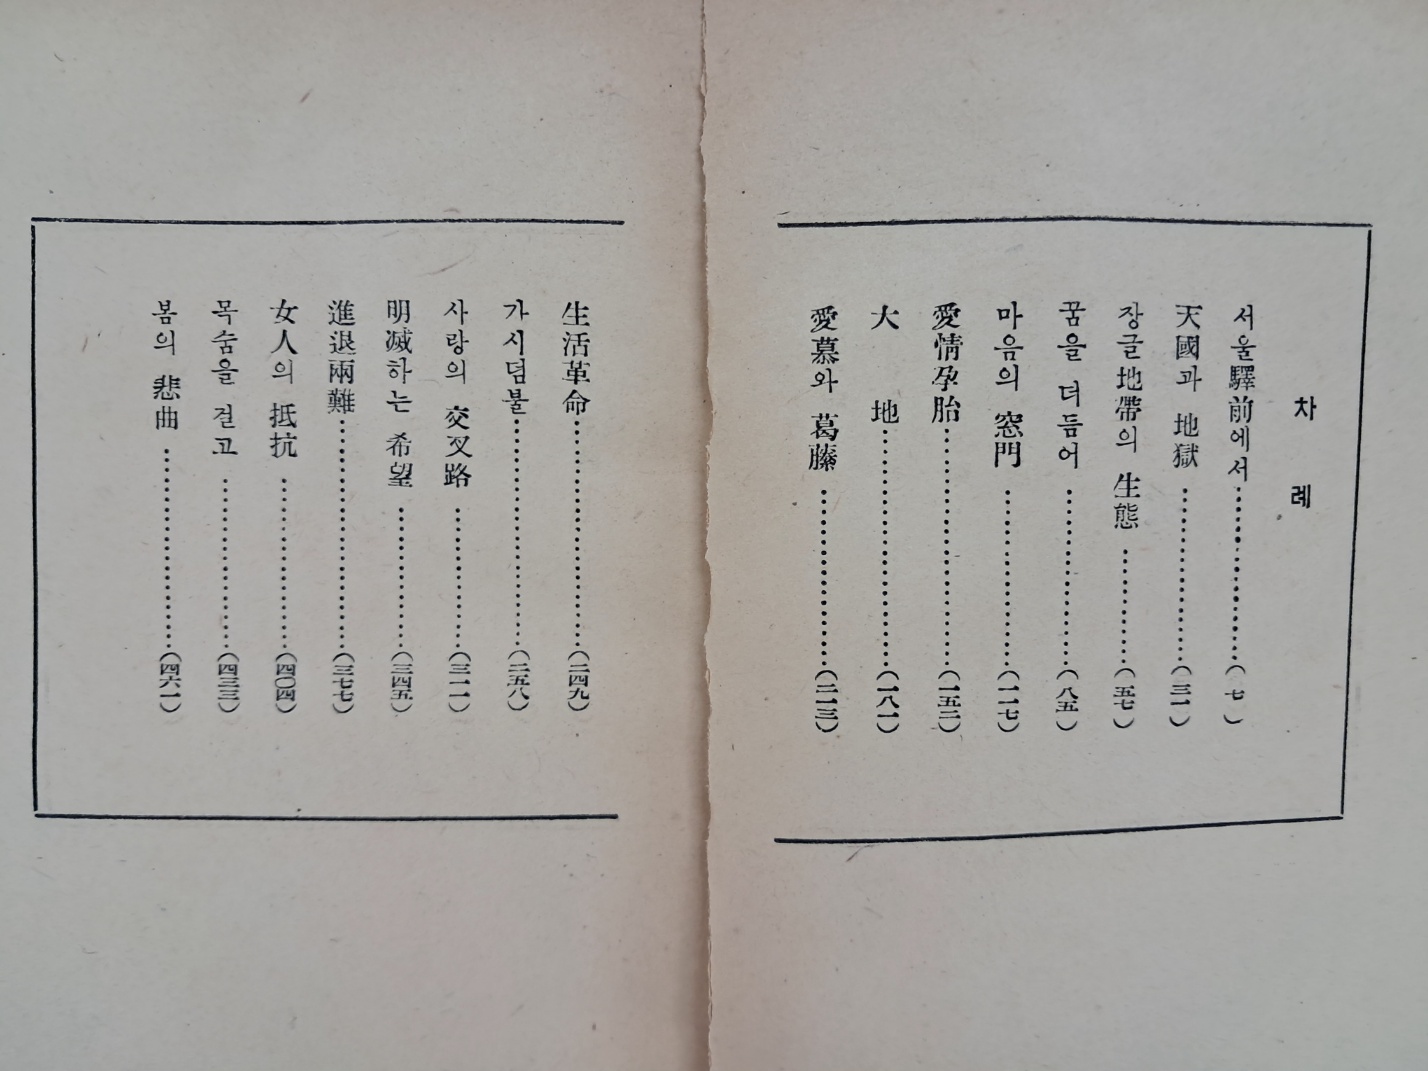 차 례
서울驛前에서…………………(七)
天國과 地獄…………………(三一)
장글地帶의 生態……………(五七)
꿈을 더듬어…………………(八五)
마음의 窓門…………………(一一七)
愛情孕胎………………………(一五二)
大 地…………………………(一八一)
愛慕와 葛藤…………………(二一三)
生活革命………………………(二四九)
가시덤불………………………(二五八)
사랑의 交叉路………………(三一一)
明滅하는 希望………………(三四五)
進退兩難………………………(三七七)
女人의 抵抗…………………(四〇四)
목숨을 걸고…………………(四三三)
봄의 悲曲……………………(四六一)